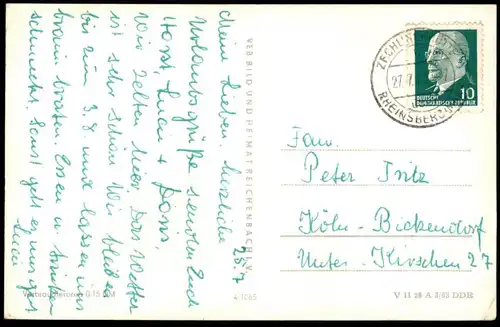 28.7
Meine Lieben. Herzliche
Urlaubsgrüße senden Euch
Horst, Luci + Doris,
Wir zelten hier Das Wetter
ist sehr schön Wir bleiben
bis zum 3.8 und lassen uns
braun braten Essen u. trinken
schmeckt. Sonst geht es uns gut
Luci
VEB BILD UND HEIMAT REICHENBACH I. V.
Verbraucherpreis 0,15 DM
4/1065
ZECHLINERHÜTTE
27.7.
RHEINSBERG
DEUTSCHE
DEMOKRATISCHE REPUBLIK
10
Fam.
Peter Fritz
Köln-Bickendorf
Unter-Kirschen 27
V 11 28 A 3/63 DDR